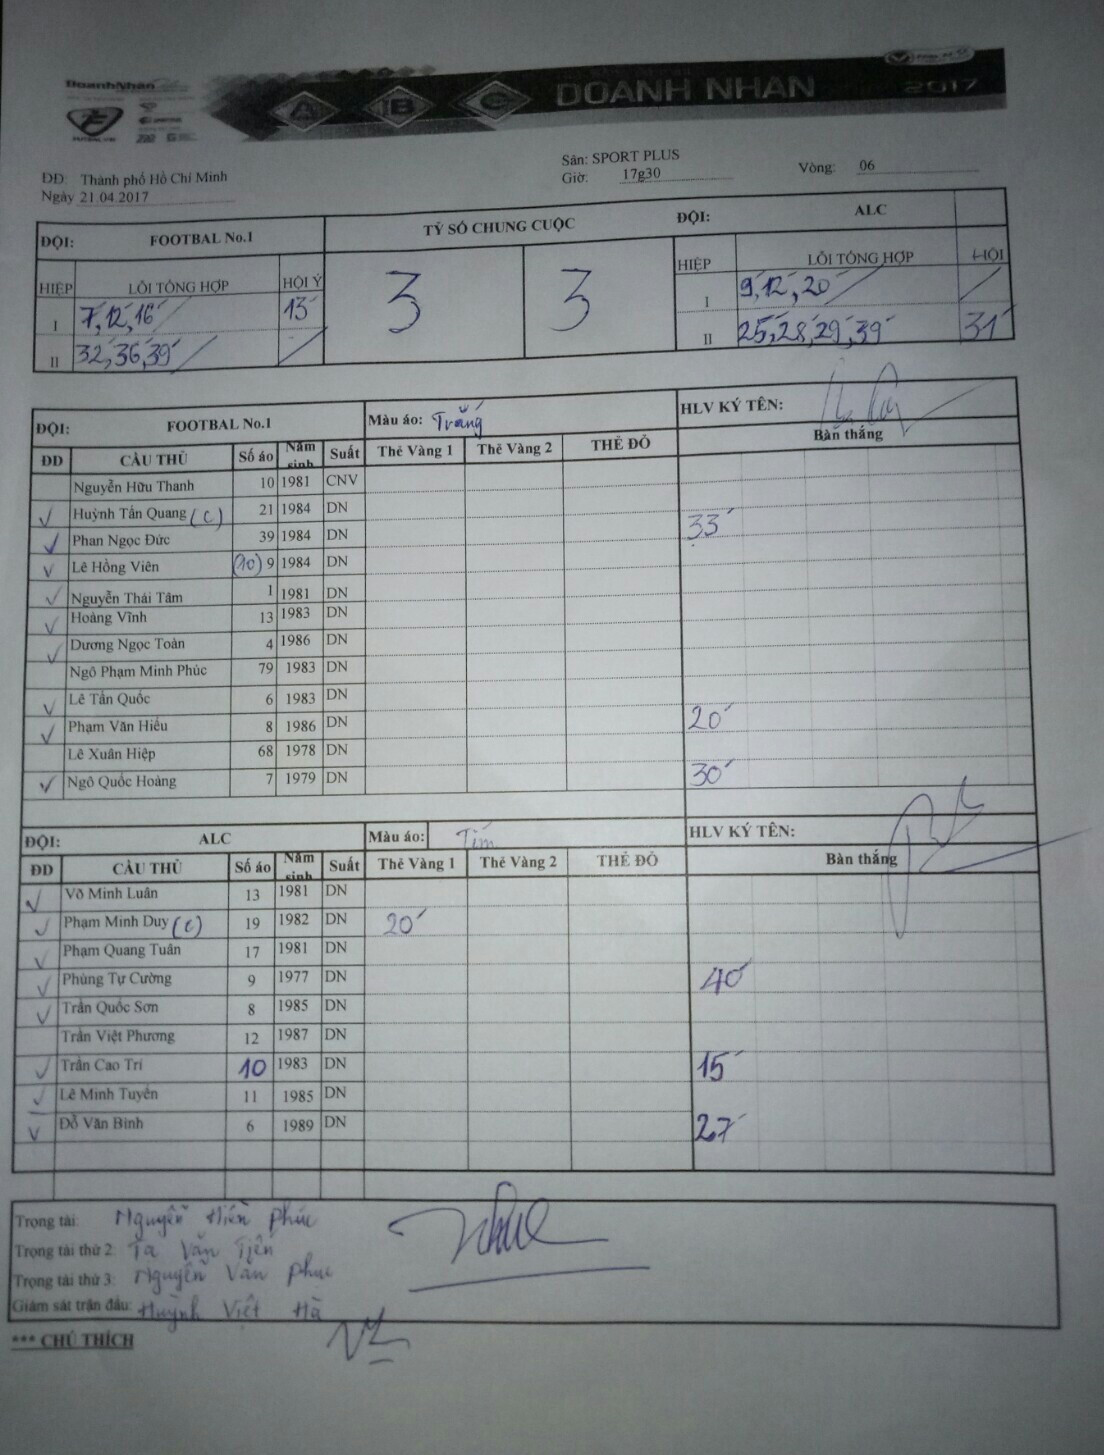 DoanhNhân
A B C DOANH NHÂN 2017
ĐĐ: Thành phố Hồ Chí Minh Sân: SPORT PLUS
Ngày 21.04.2017 Giờ: 17g30 Vòng: 06
ĐỘI: FOOTBAL No.1 TỶ SỐ CHUNG CUỘC ĐỘI: ALC
HIỆP LỖI TỔNG HỢP HỘI Ý 3 3 HIỆP LỖI TỔNG HỢP HỘI
I 7, 12, 16' 13' I 9', 12', 20'
II 32, 36, 39' II 25', 28', 29', 39' 31'
ĐỘI: FOOTBAL No.1 Màu áo: Trắng HLV KÝ TÊN:
ĐD CẦU THỦ Số áo Năm sinh Suất Thẻ Vàng 1 Thẻ Vàng 2 THẺ ĐỎ Bàn thắng
Nguyễn Hữu Thanh 10 1981 CNV
✓ Huỳnh Tấn Quang (C) 21 1984 DN 33'
✓ Phan Ngọc Đức 39 1984 DN
✓ Lê Hồng Viên (10) 9 1984 DN
✓ Nguyễn Thái Tâm 1 1981 DN
✓ Hoàng Vĩnh 13 1983 DN
✓ Dương Ngọc Toàn 4 1986 DN
Ngô Phạm Minh Phúc 79 1983 DN
✓ Lê Tấn Quốc 6 1983 DN
✓ Phạm Văn Hiếu 8 1986 DN 20'
Lê Xuân Hiệp 68 1978 DN
✓ Ngô Quốc Hoàng 7 1979 DN 30'
ĐỘI: ALC Màu áo: Tím HLV KÝ TÊN:
ĐD CẦU THỦ Số áo Năm sinh Suất Thẻ Vàng 1 Thẻ Vàng 2 THẺ ĐỎ Bàn thắng
✓ Võ Minh Luân 13 1981 DN
✓ Phạm Minh Duy (C) 19 1982 DN 20'
✓ Phạm Quang Tuân 17 1981 DN
✓ Phùng Tự Cường 9 1977 DN 40'
✓ Trần Quốc Sơn 8 1985 DN
Trần Việt Phương 12 1987 DN
✓ Trần Cao Trí 10 1983 DN 15'
✓ Lê Minh Tuyển 11 1985 DN
✓ Đỗ Văn Bình 6 1989 DN 27'
Trọng tài: Nguyễn Hiền Phúc
Trọng tài thứ 2: Tạ Văn Tiến
Trọng tài thứ 3: Nguyễn Văn Phúc
Giám sát trận đấu: Huỳnh Việt Hà
*** CHÚ THÍCH